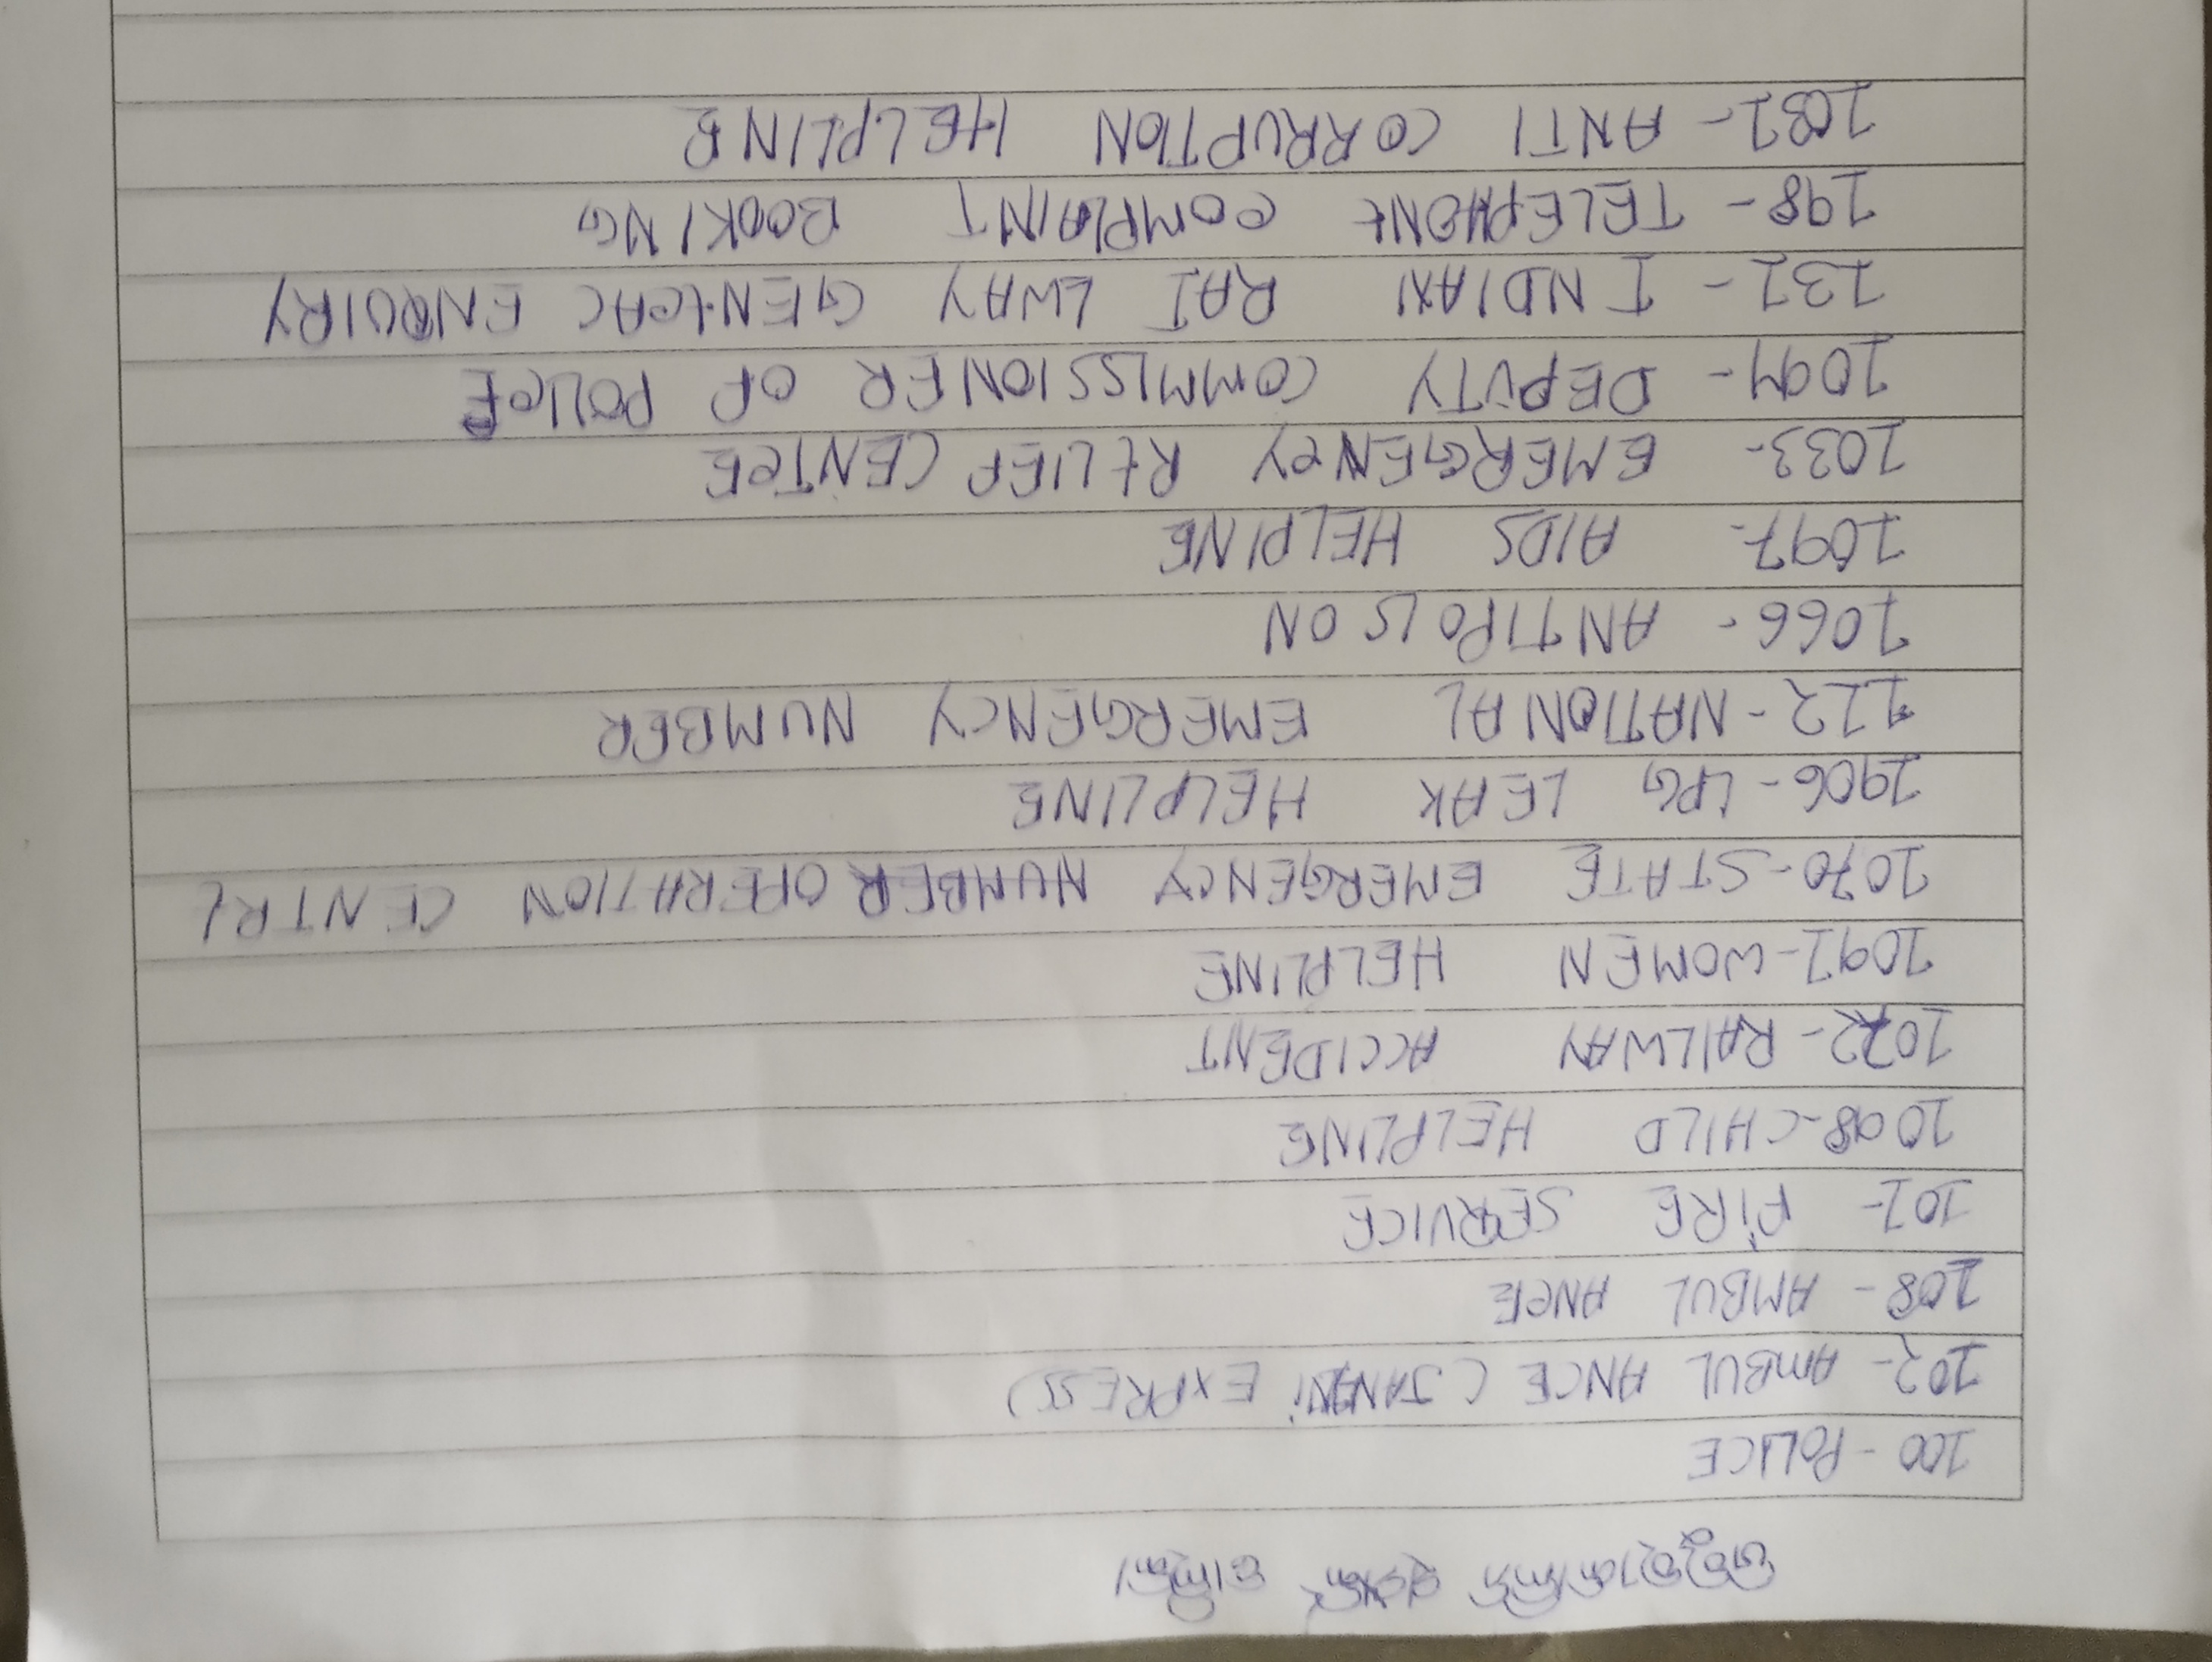 100 - POLICE
102 - AMBUL ANCE (JANANI EXPRESS)
108 - AMBUL ANCE
101 - FIRE SERVICE
1098 - CHILD HELPLINE
1072 - RAILWAY ACCIDENT
1091 - WOMEN HELPLINE
1070 - STATE EMERGENCY NUMBER OPERATION CENTRL
1906 - LPG LEAK HELPLINE
112 - NATIONAL EMERGENCY NUMBER
1066 - ANTIPOIS ON
1097 - AIDS HELPINE
1033 - EMERGENCY RELIEF CENTRE
1094 - DEPUTY COMMISSIONER OF POLICE
131 - INDIAN RAI LWAY GENERAL ENQUIRY
198 - TELEPHONE COMPLAINT BOOKING
1031 - ANTI CORRUPTION HELPLINE